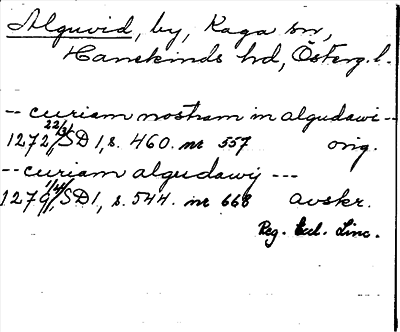 Alguvid, by, Kaga sn,
Hanekinds hd, Österg. l.
-- curiam nostram in algudawi --
1272 22/3, SD 1, s. 460. nr 557 orig.
-- curiam algudawij ---
1279 1/4, SD 1, s. 544. nr 668 avskr.
Reg. Eccl. Linc.